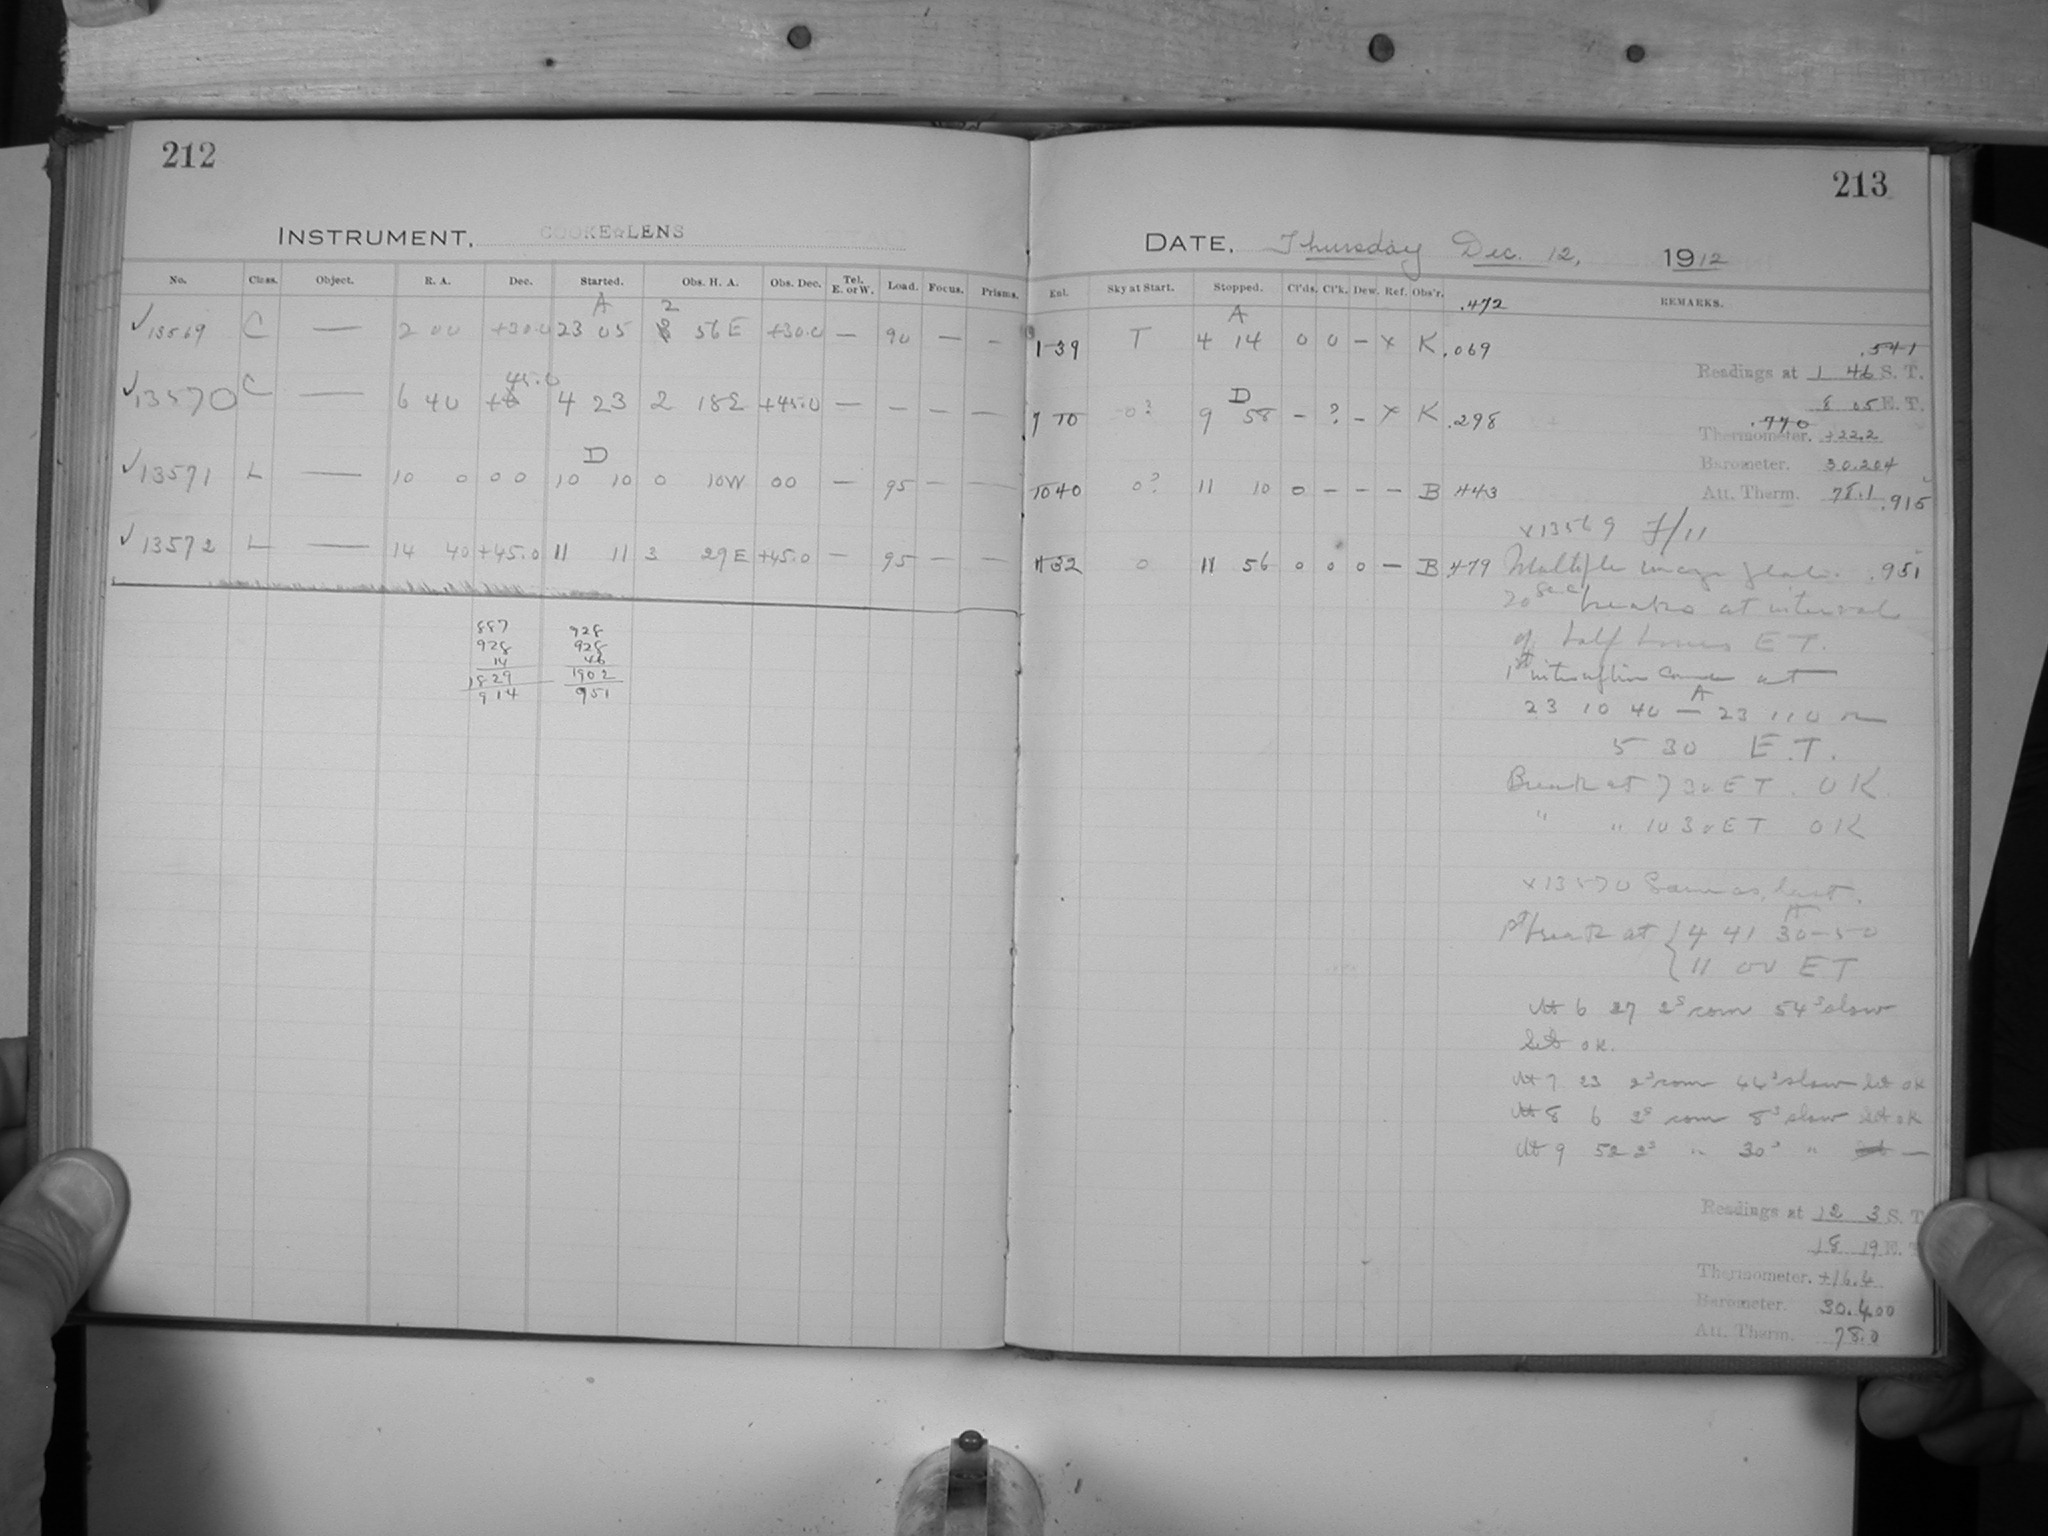 212
INSTRUMENT, COOKE LENS
No. Class. Object. R. A. Dec. Started. Obs. H. A. Obs. Dec. Tel. E. or W. Load. Focus. Prisms.
A 2
✓13569 C — 2 00 +30.0 23 05 56 E +30.0 — 90 — —
45.0
✓13570 C — 6 40 4 23 2 18E +45.0 — — — —
D
✓13571 L — 10 0 0 0 10 10 0 10W 00 — 95 — —
✓13572 L — 14 40 +45.0 11 11 3 29E +45.0 — 95 — —
887 928
928 928
14 46
1829 1902
914 951
213
DATE, Thursday Dec. 12, 1912
Ent. Sky at Start. Stopped. Cl'ds. Cl'k. Dew. Ref. Obs'r. .472 REMARKS.
A
1 39 T 4 14 0 0 — x K .069 .541
Readings at 1 46 S. T.
8 05 E. T.
D
7 10 0? 9 58 — ? — x K .298 .770
Thermometer. +22.2
Barometer. 30.204
Att. Therm. 78.1
10 40 0? 11 10 0 — — — B 443 .915
x13569 F/11
11 32 0 11 56 0 0 0 — B .479 Multiple image .951
20 sec breaks at interval
of half hours E T.
1st at
A
23 10 40 — 23 11 0
5 30 E.T.
Break at 7 30 E T. OK
" " 10 30 E T OK
x13570 Same as last.
A
1st break at { 4 41 30—50
{ 11 00 E T
At 6 27 2s corr 54s slow
Set OK.
At 7 23 2s corr 44s slow Set OK
At 8 6 2s corr 8s slow Set OK
At 9 52 2s " 30s " —
Readings at 12 3 S. T.
18 19 E. T
Thermometer. +16.4
Barometer. 30.400
Att. Therm. 78.0